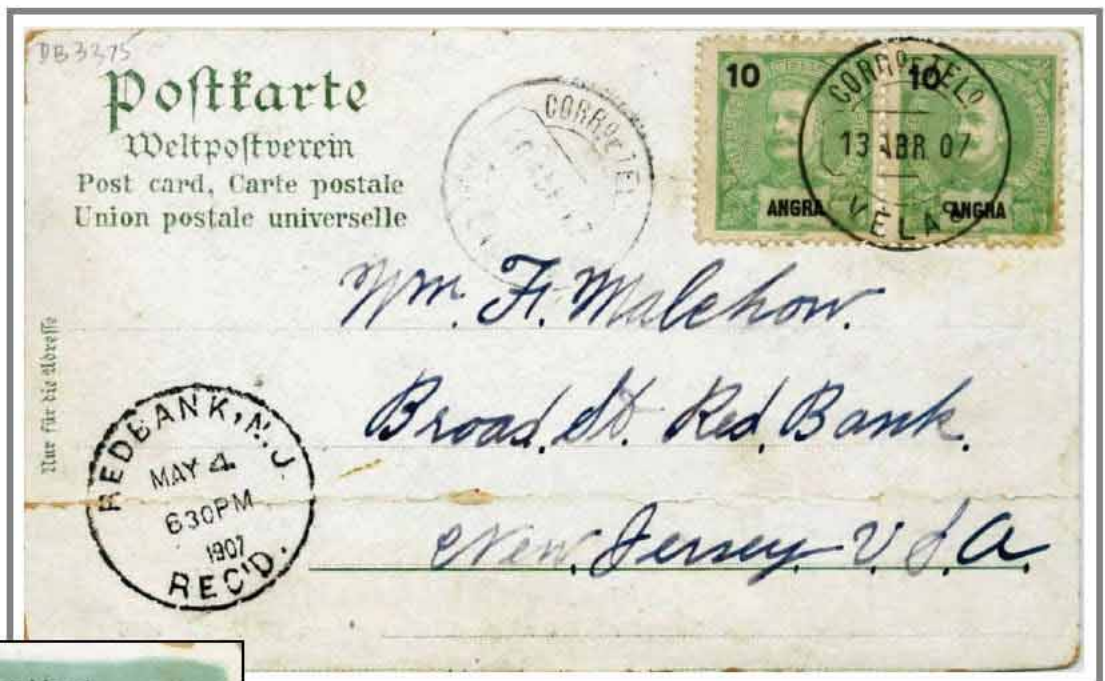 DB3275
Postkarte
Weltpostverein
Post card, Carte postale
Union postale universelle
Nur für die Adresse
CORRO E TEL
10
ANGRA
10
ANGRA
CORRO E TELO
13 ABR 07
VELAS
Wm. F. Malchow.
Broad. St. Red. Bank.
New. Jersey. U S A.
REDBANK, N.J.
MAY 4
630PM
1907
REC'D.